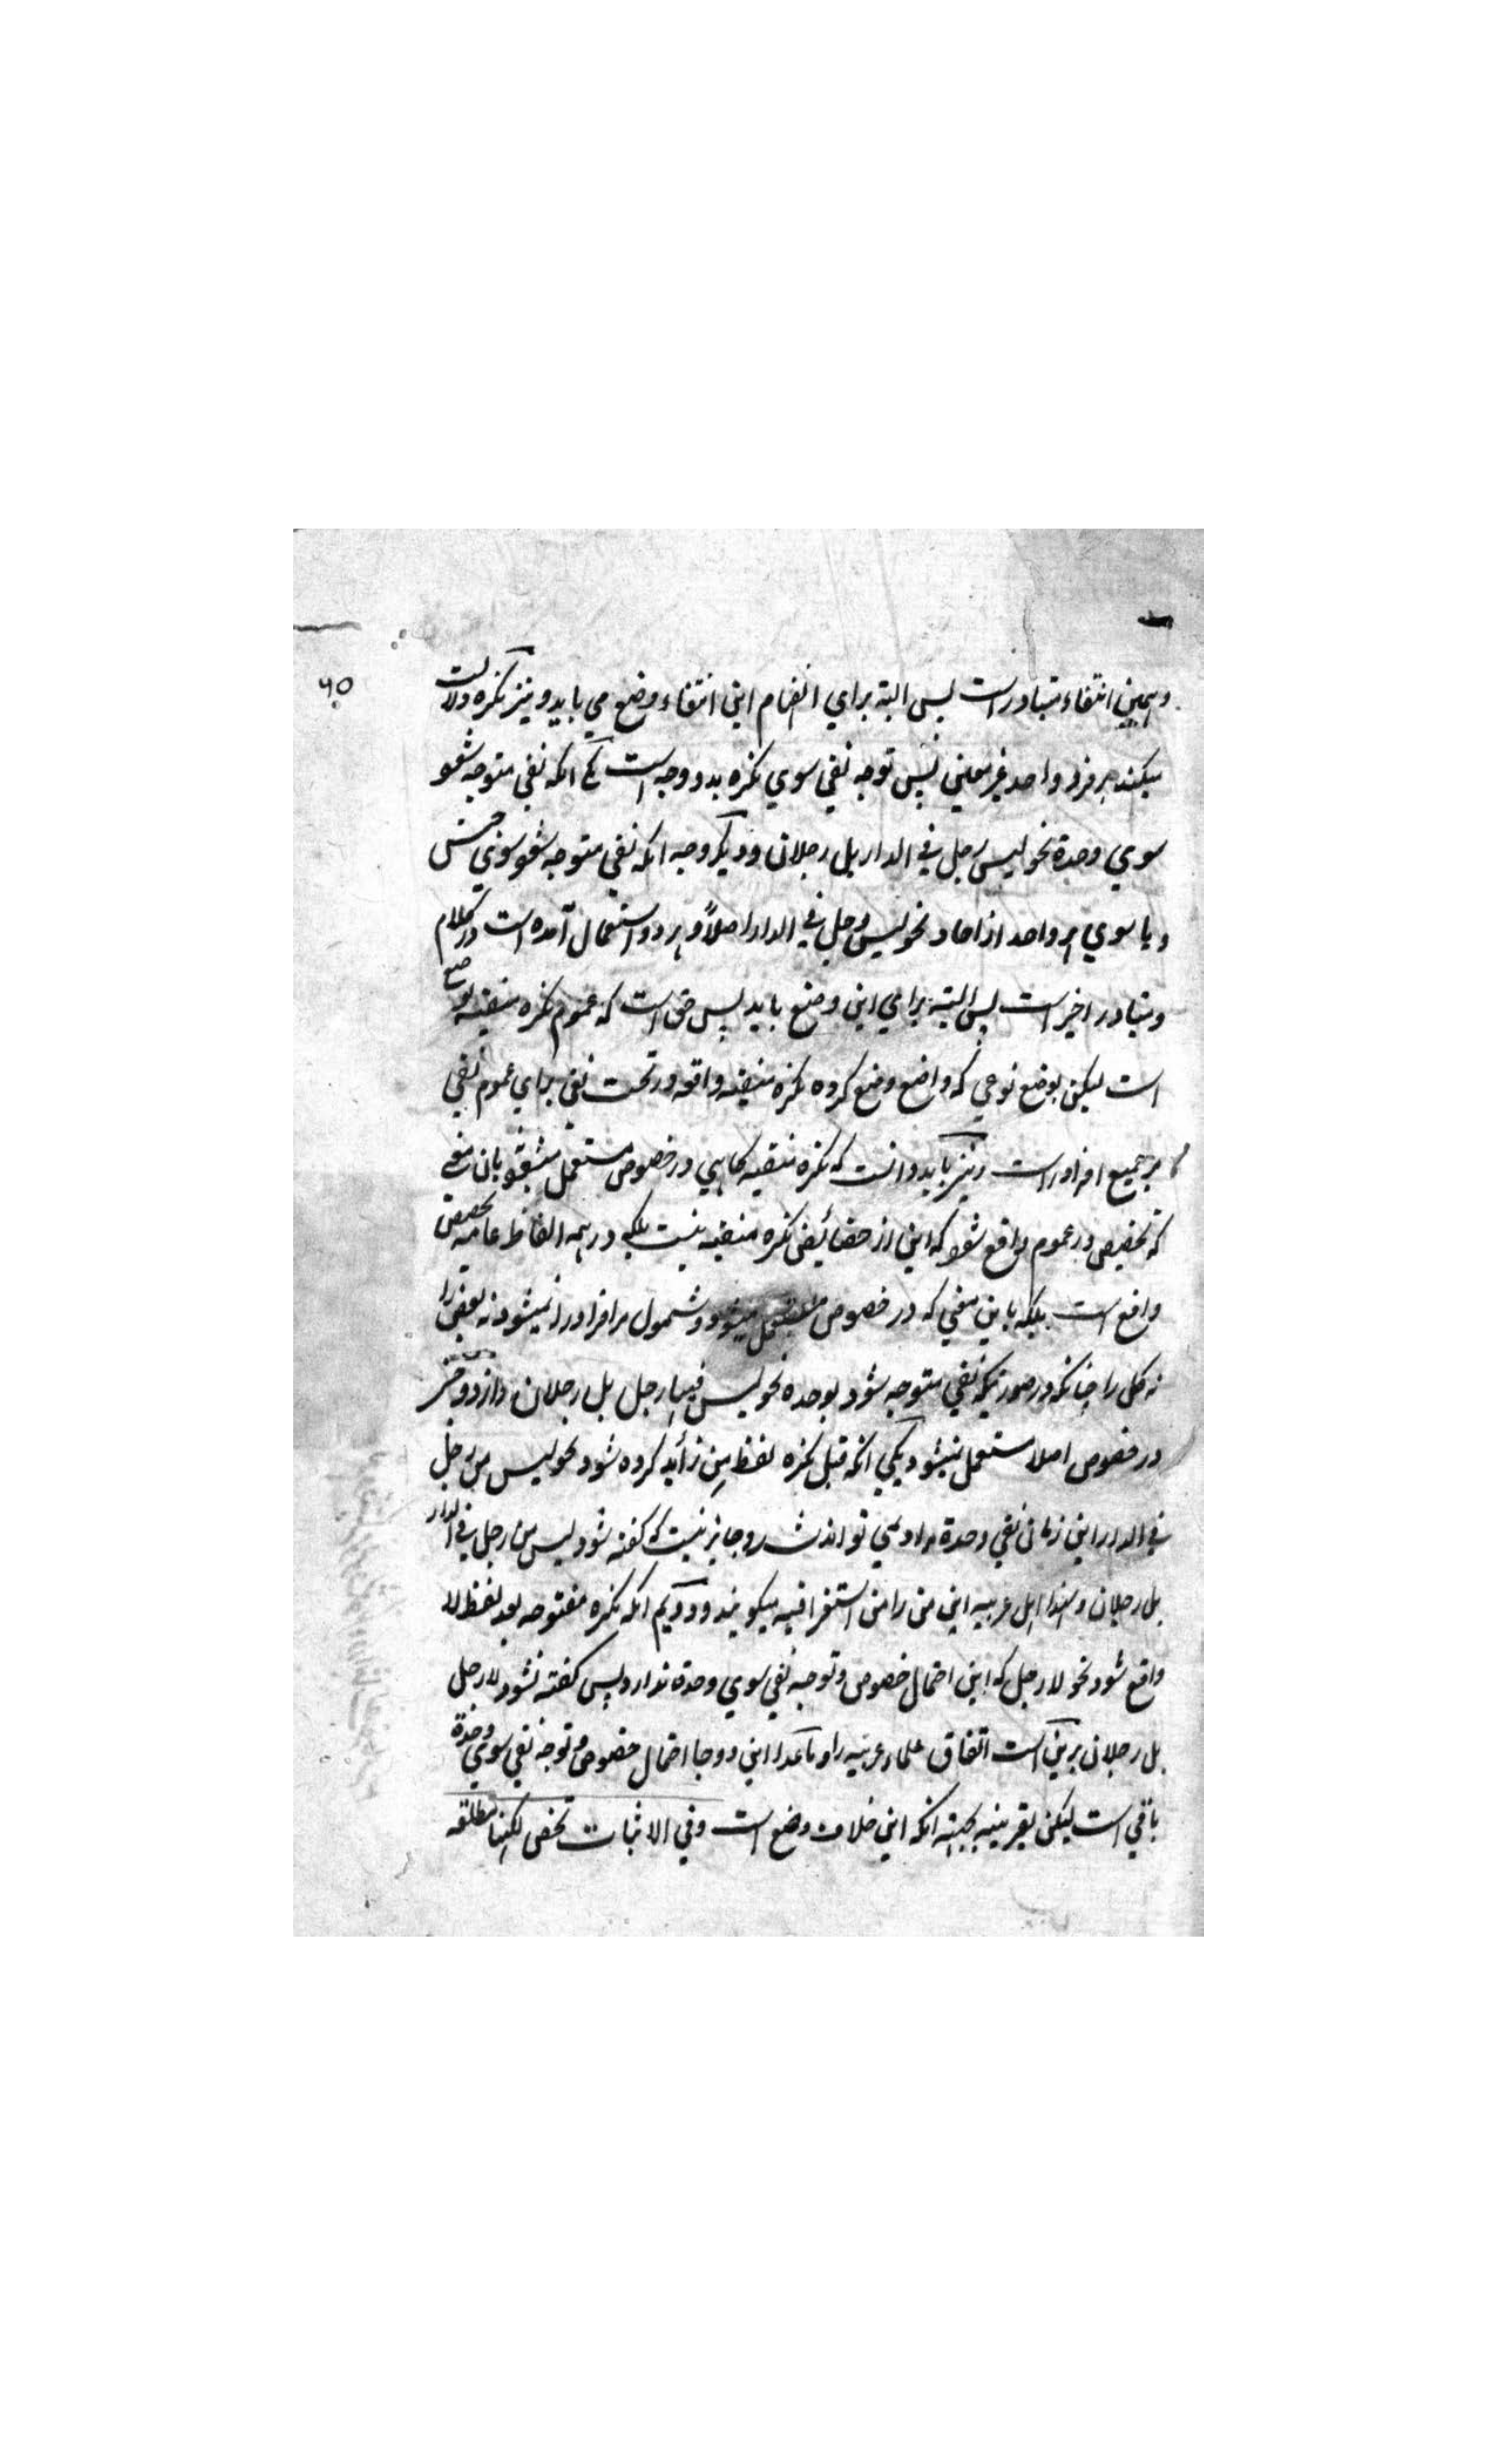 ۶۵
وهمین انتفاء متبادر است پس البته برای انضمام این انتفاء وضع می باید و نیز نکره دلالت
میکند بر فرد واحد غیر معین پس توجه نفی سوی نکره بدو وجه است یکی انکه نفی متوجه شود
سوی وحدة نحو لیس رجل فی الدار بل رجلان و دیگر وجه انکه نفی متوجه شود سوی جنس
و یا سوی هر واحد از احاد نحو لیس رجل فی الدار اصلاً و هر دو استعمال آمده است در کلام
و متبادر اخیر است پس البته برای این وضع باید پس حق است که عموم نکره منفیه بوضع
است لیکن بوضع نوعی که واضع وضع کرده نکره منفیه واقعه در تحت نفی برای عموم نفی
بر جمیع افراد راست و نیز باید دانست که نکره منفیه گاهی در خصوص مستعمل میشود بان معنی
که تخصیص در عموم واقع شود که این از خصائص نکره منفیه نیست بلکه در همه الفاظ عامه تخصیص
واقع است بلکه باین معنی که در خصوص مستعمل میشود و شمول مر افراد را نمیشود نه بعض را
نه کل را چنانکه در صورتیکه نفی متوجه شود بوحده نحو لیس فیها رجل بل رجلان و از دو
در خصوص اصلا مستعمل نمیشود یکی انکه قبل نکره لفظ مِن زائد کرده شود نحو لیس من رجل
فی الدار این زمان نفی وحدة مراد نمی تواند شد و جایز نیست که گفته شود لیس من رجل فی الدار
بل رجلان و لهذا اهل عربیه این من را من استغراقیه میگویند و دویم انکه نکره مفتوحه بعد لفظ لا
واقع شود نحو لا رجل که این احتمال خصوص و توجه نفی سوی وحدة ندارد پس گفته نشود لا رجل
بل رجلان برین است اتفاق علماء عربیه را و ماعدا این دو جا احتمال خصوص و توجه نفی سوی وحدة
باقی است لیکن بقرینه بجهته انکه این خلاف وضع است وفی الاثبات تخص لکنها مطلقه